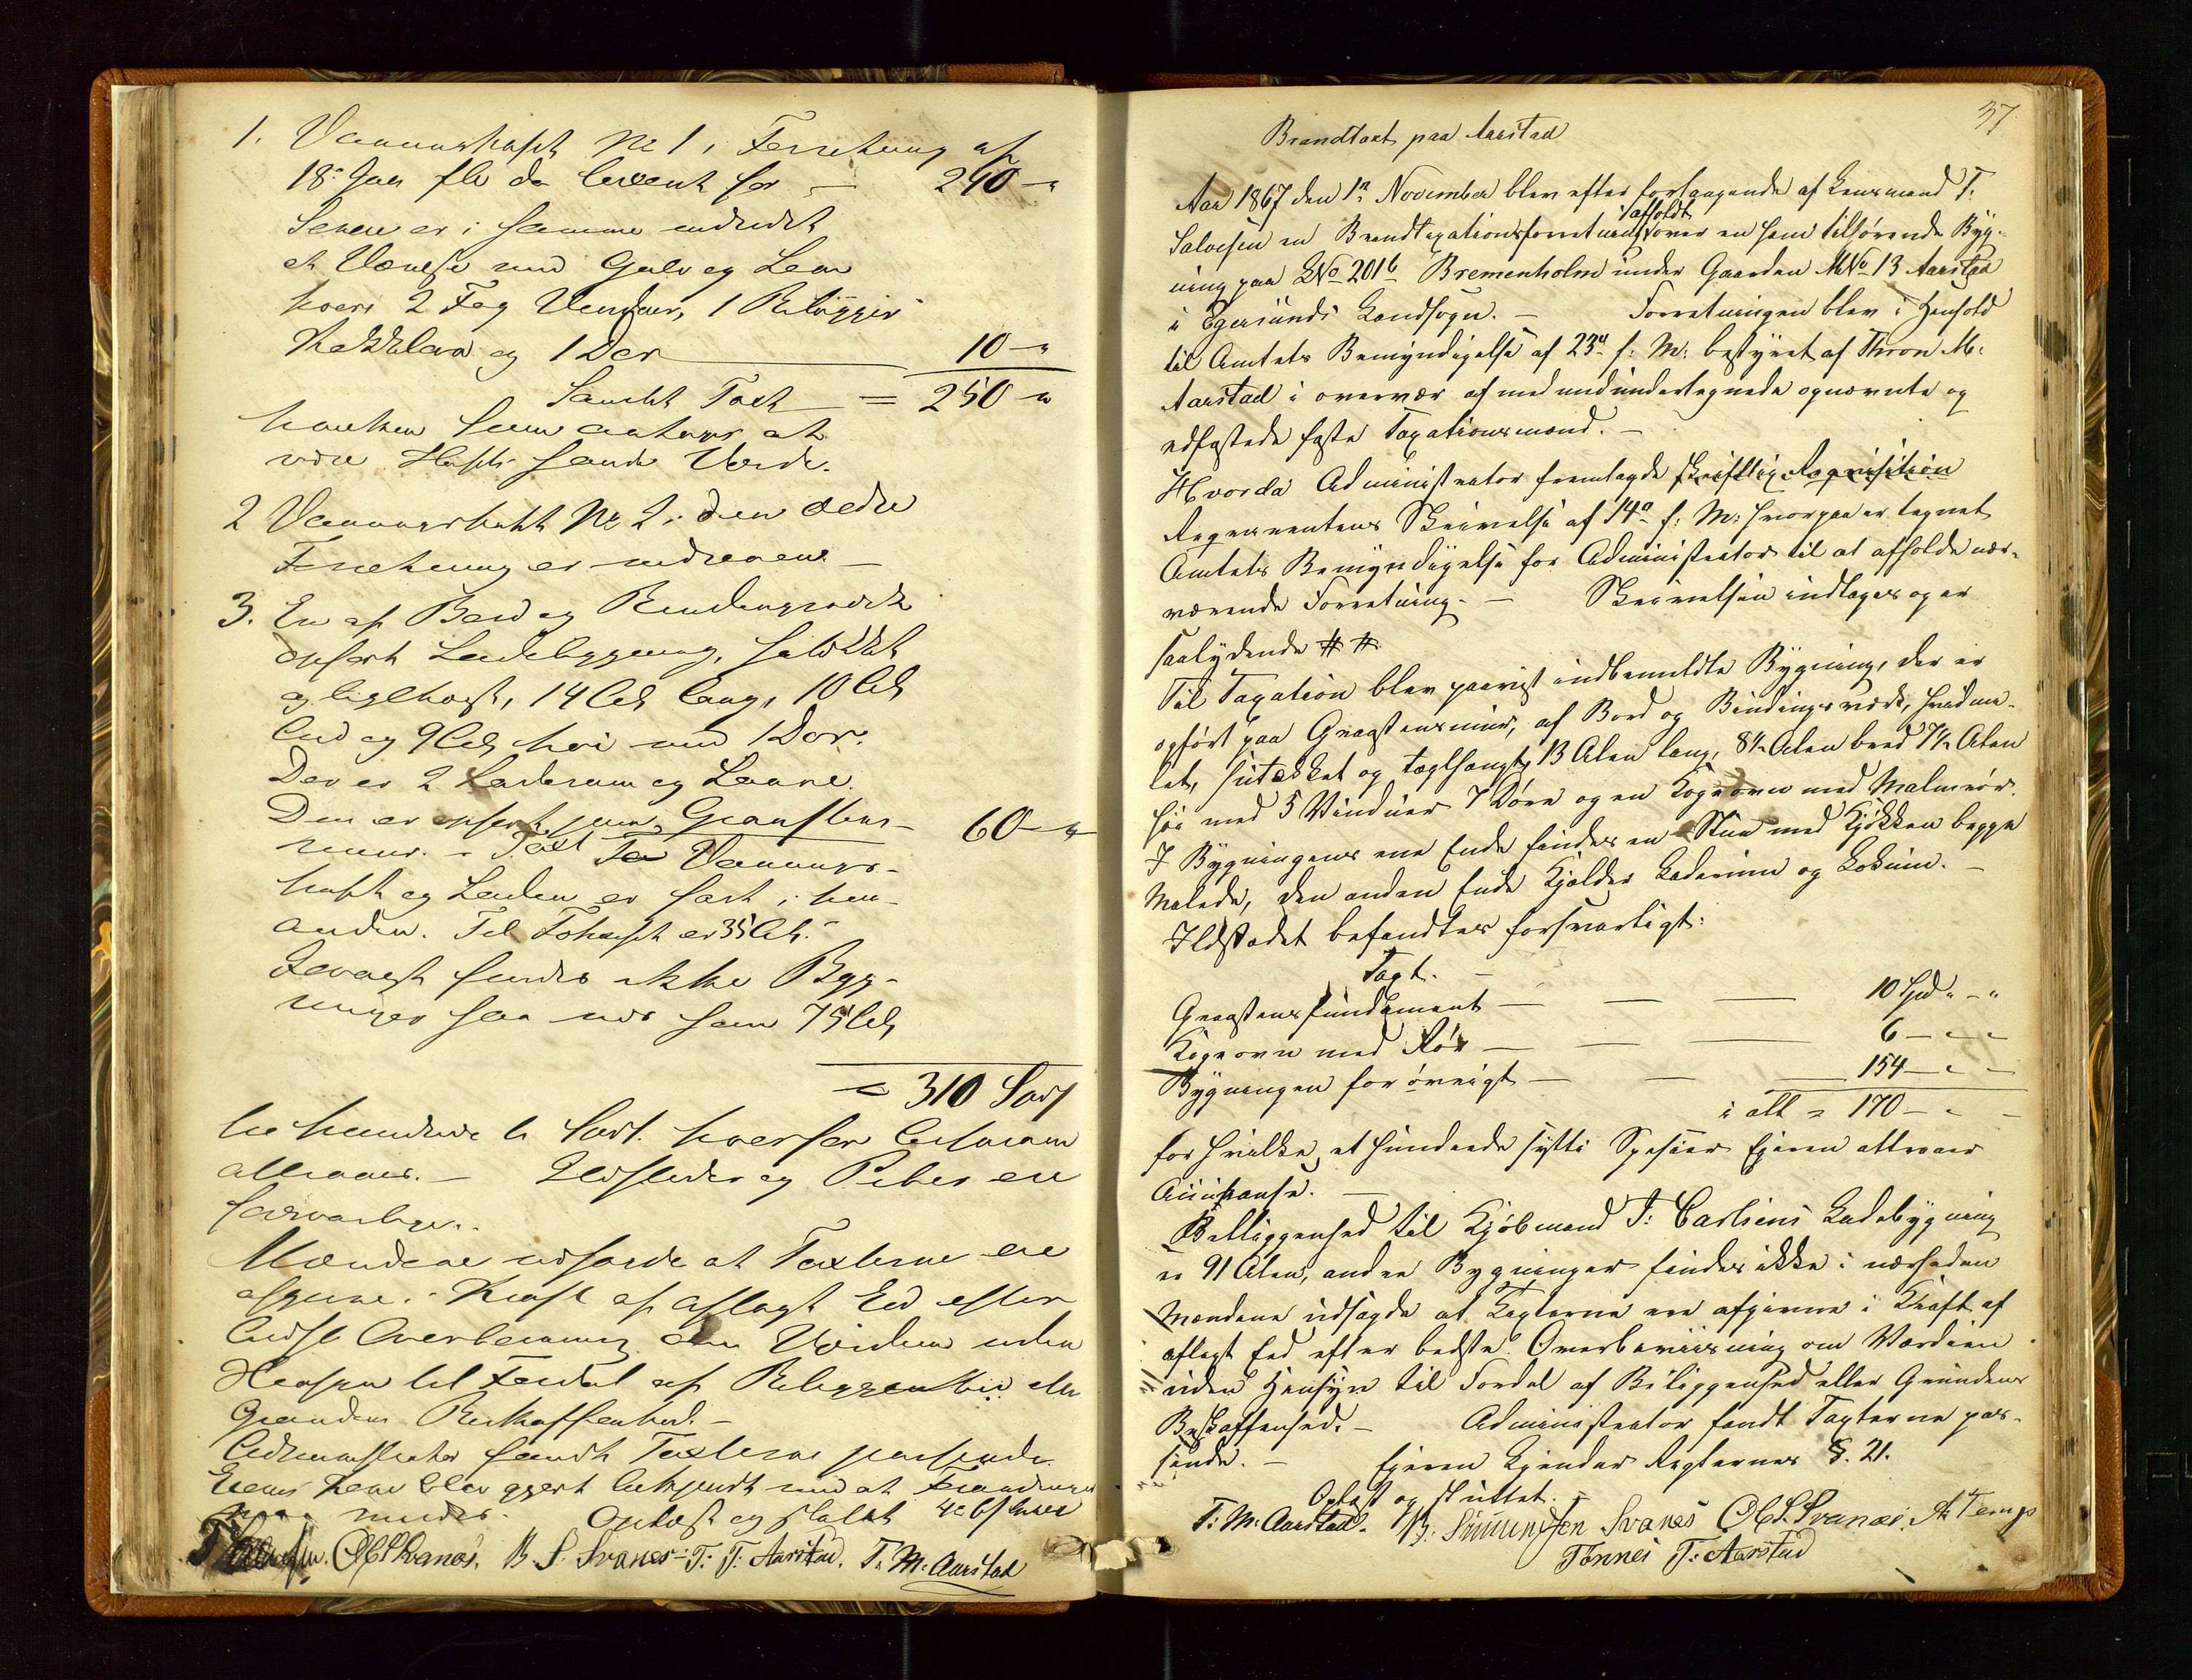 1. Vaaningshuset No 1, Forretning af
18de Juni f. A. da taxeret for — 240 - "
Senere er i samme indredet
et Værelse med Gulv og Loem
hvori 2 Fag Vinduer, 1 Bilægger
Kakkelovn og 1 Dør — 10 - "
Samlet Taxt = 250 - "
hvilken Sum antages at
være Husets sande Værdi.
2 Vaaningshuset No 2 i den ældre
Forretning er nedrevene —
3. En af Bord og Bindingsværk
opført Ladebygning, sutækket
og teglhængt, 14 Al. lang, 10 Al.
bred og 9 Al. høi med 1 Dør.
Der er 2 Laderum og Laave.
Den er opført paa Graastens-
muur. - Taxt 60 - "
Vaanings-
huset og Laden er fast i hin-
anden. Til Fohuset er 35 Al.
Forøvrigt findes ikke Byg-
ninger saa nær som 75 Al.
= 310 Spd
tre hundrede ti Spd. hvorfor Assurance
attraaes. — Ildsteder og Piber ere
forsvarlige.
Mændene udsagde at Taxterne ere
afgivne i Kraft af aflagt Eed efter
bedste Overbeviisning om Værdien uden
Hensyn til Fordel af Beliggenhed eller
Grundens Beskaffenhed. —
Administrator fandt Taxterne passende.
Eieren heraf blev gjort bekjendt med at
Oplæst og sluttet
O S Svanæs. B. S. Svanæs - T. T. Aarstad. T. M. Aarstad
37
Brandtaxt paa Aarstad
Aar 1867 den 1ste November blev efter forlangende af Lensmand T.
Salvesen en Brandtaxationsforretning afholdt over en ham tilhørende Byg-
ning paa LNo 201b Bremenholm under Gaarden MNo 13 Aarstad
i Egersunds Landsogn. — Forretningen blev i Henhold
til Amtets Bemyndigelse af 23de f. M. bestyret af Thron M.
Aarstad i overvær af med undertegnede opnævnte og
edfæstede faste Taxationsmænd. —
Hvorda Administrator fremlagde skriftlig Requisition
Requirentens Skrivelse af 14de f. M. hvorpaa er tegnet
Amtets Bemyndigelse for Administrator til at afholde nær-
værende Forretning. — Skrivelsen indtages og er
saalydende # #
Til Taxation blev paavist indbemeldte Bygning, der er
opført paa Graastensmur, af Bord og Bindingsværk, hvidma-
let, sutækket og teglhængt, 13 Alen lang, 8½ Alen bred 7½ Alen
høi med 5 Vinduer 7 Døre og en Kogeovn med Malmrør.
I Bygningens ene Ende findes en Stue med Kjøkken begge
Malede, den anden Ende Kjælder Laderum og Lokum. —
Ildstedet befandtes forsvarligt:
Taxt. —
Graastensfundament — 10 Spd " - "
Kogeovn med Rør — 6 - " -
Bygningen for øvrigt — 154 - " -
i alt = 170 - " -
for hvilke et hundrede sytti Spesier Eieren attraaer
Assurance. —
Beliggenhed til Kjøbmand T. Carlsens Ladebygning
er 91 Alen, andre Bygninger findes ikke i nærheden
Mændene udsagde at Taxterne ere afgivne i Kraft af
aflagt Eed efter bedste Overbeviisning om Værdien
uden Hensyn til Fordel af Beliggenhed eller Grundens
Beskaffenhed. — Administrator fandt Taxterne pas-
sende. — Eieren kjender Reglernes §. 21.
Oplæst og sluttet. —
T. M. Aarstad. B. Simundsen Svanæs O S. Svanæs. A Temp
Tønnes T. Aarstad